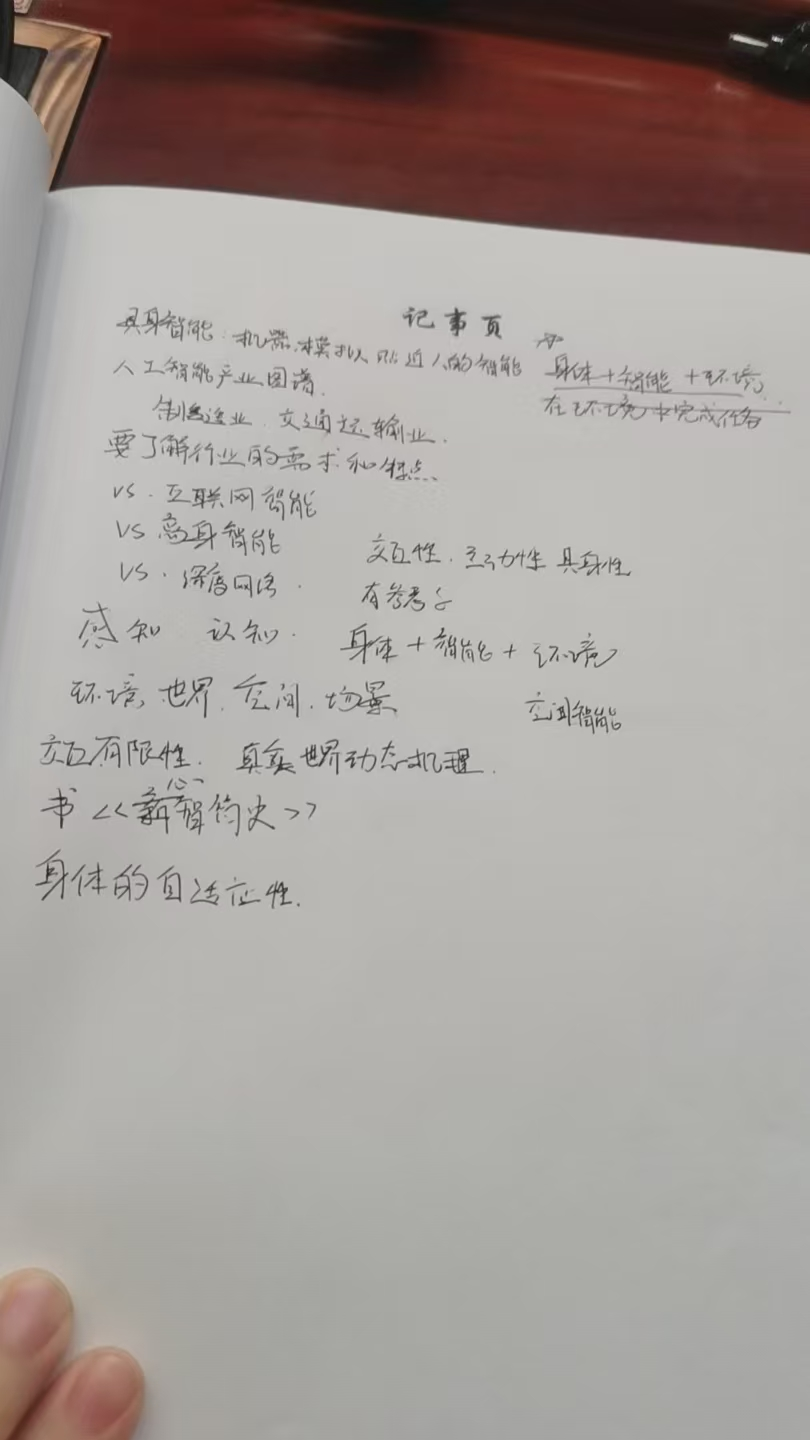 记事页
具身智能：机器模拟贴近人的智能
身体+智能+环境
在环境中完成任务
人工智能产业图谱.
制造业、交通运输业.
要了解行业的需求和特点
VS. 互联网智能
VS 离身智能
VS. 深度网络.
交互性、主动性 具身性
有参考
感知 认知.
身体+智能+环境
环境, 世界, 空间, 场景
空间智能
交互有限性. 真实世界动态机理.
书<<智简史>>
身体的自适应性.